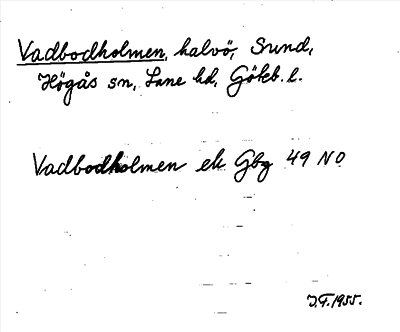 Vadbodholmen, halvö, Sund,
Högås sn, Lane hd, Göteb. l.
Vadbodholmen ek Gbg 49 NO
J.F. 1955.